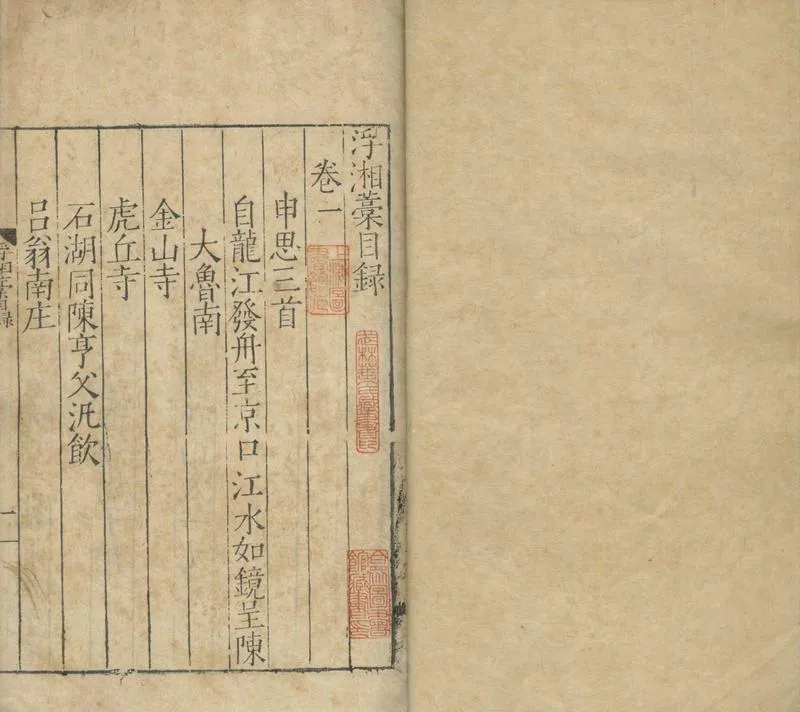 浮湘藁目録
卷一
申思三首
自龍江發舟至京口江水如鏡呈陳
大魯南
金山寺
虎丘寺
石湖同陳亨父汎飲
吕翁南庄